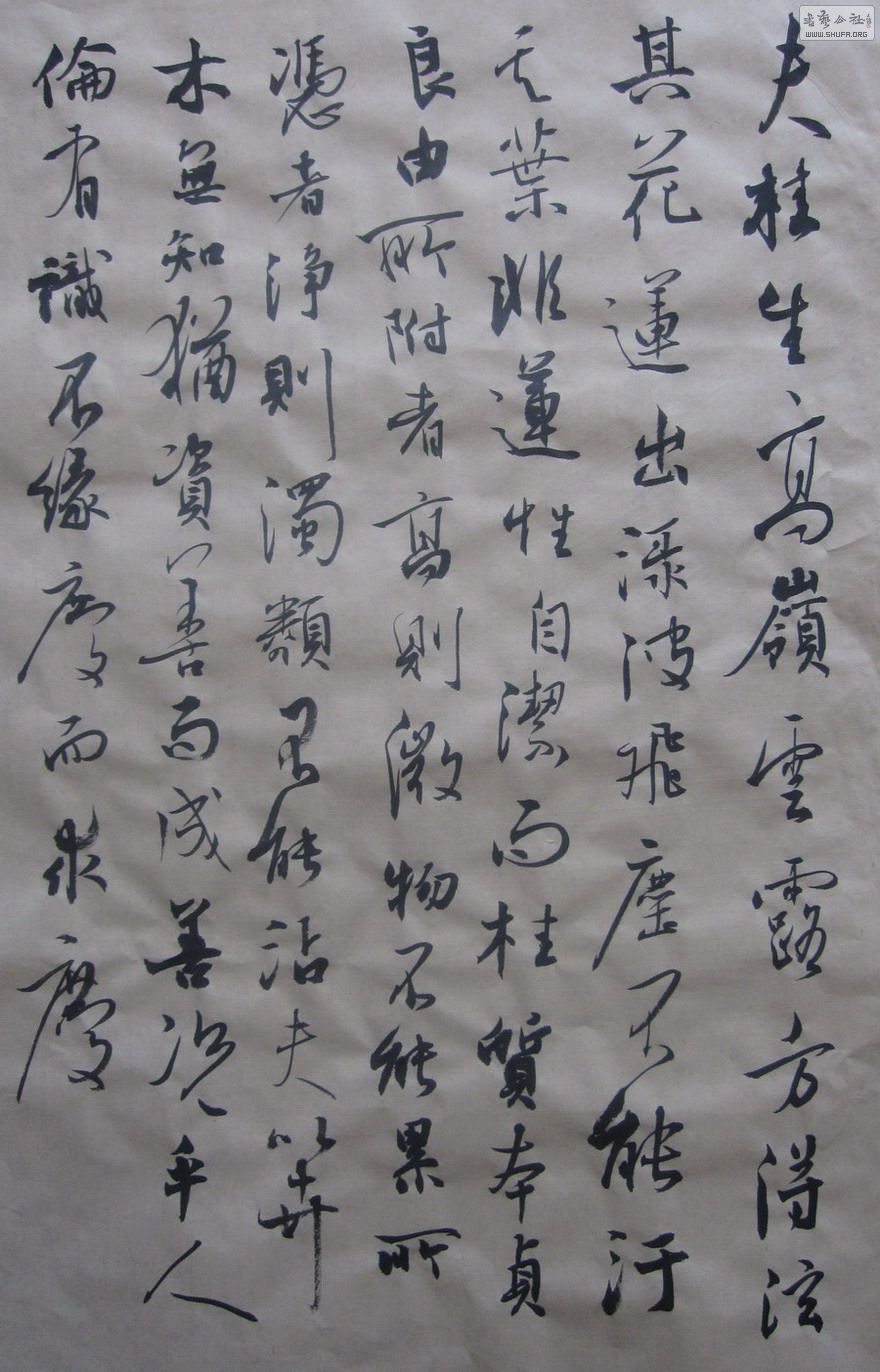 夫桂生高嶺雲露方得泫
其花蓮出淥波飛塵不能汙
其葉非蓮性自潔而桂質本貞
良由所附者高則微物不能累所
憑者淨則濁類不能沾夫以卉
木無知猶資善而成善况乎人
倫有識不緣慶而求慶
书艺公社
WWW.SHUFA.ORG